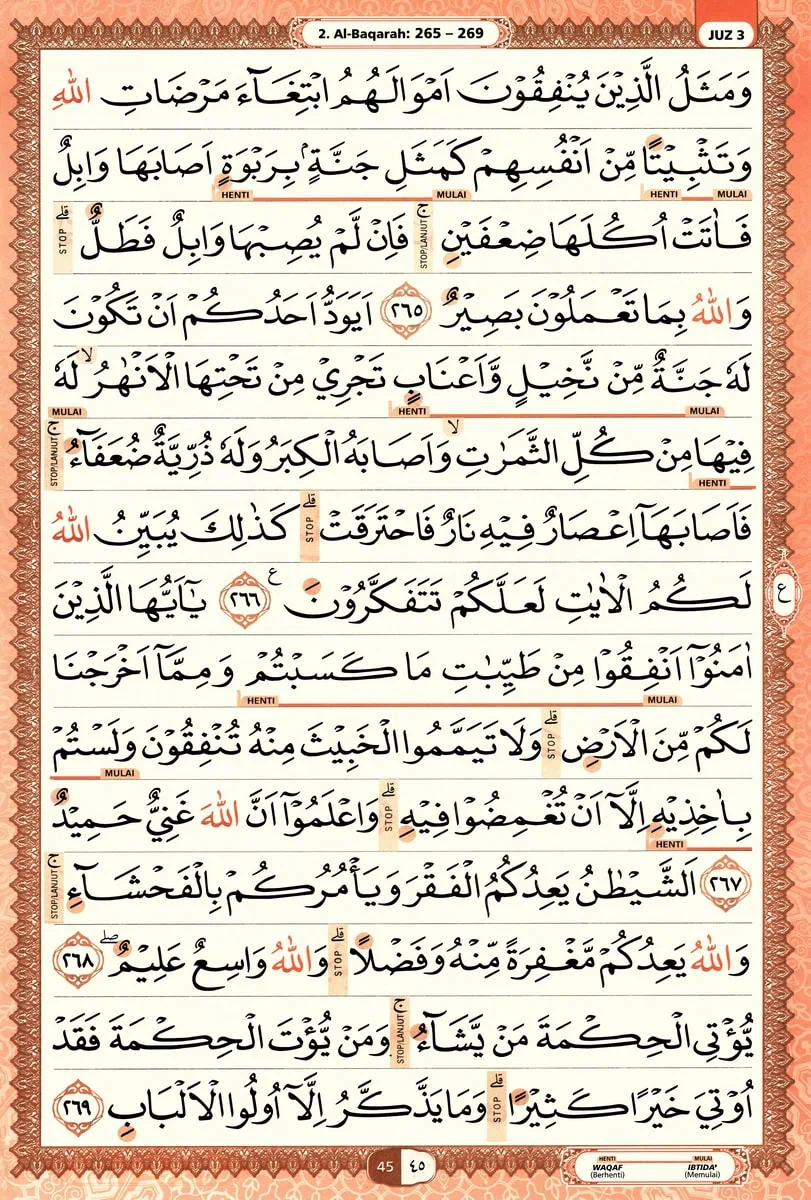 2. Al-Baqarah: 265 – 269
JUZ 3
وَمَثَلُ الَّذِيْنَ يُنْفِقُوْنَ اَمْوَالَهُمُ ابْتِغَاۤءَ مَرْضَاتِ اللّٰهِ
وَتَثْبِيْتًا مِّنْ اَنْفُسِهِمْ كَمَثَلِ جَنَّةٍۢ بِرَبْوَةٍ اَصَابَهَا وَابِلٌ
HENTI MULAI HENTI MULAI
فَاٰتَتْ اُكُلَهَا ضِعْفَيْنِۚ فَاِنْ لَّمْ يُصِبْهَا وَابِلٌ فَطَلٌّۗ
STOP/LANJUT STOP
وَاللّٰهُ بِمَا تَعْمَلُوْنَ بَصِيْرٌ ٢٦٥ اَيَوَدُّ اَحَدُكُمْ اَنْ تَكُوْنَ
لَهٗ جَنَّةٌ مِّنْ نَّخِيْلٍ وَّاَعْنَابٍ تَجْرِيْ مِنْ تَحْتِهَا الْاَنْهٰرُۙ لَهٗ
MULAI HENTI MULAI
فِيْهَا مِنْ كُلِّ الثَّمَرٰتِۙ وَاَصَابَهُ الْكِبَرُ وَلَهٗ ذُرِّيَّةٌ ضُعَفَاۤءُۚ
STOP/LANJUT HENTI
فَاَصَابَهَآ اِعْصَارٌ فِيْهِ نَارٌ فَاحْتَرَقَتْۗ كَذٰلِكَ يُبَيِّنُ اللّٰهُ
STOP
لَكُمُ الْاٰيٰتِ لَعَلَّكُمْ تَتَفَكَّرُوْنَ ࣖ ٢٦٦ يٰٓاَيُّهَا الَّذِيْنَ
ع
اٰمَنُوْٓا اَنْفِقُوْا مِنْ طَيِّبٰتِ مَا كَسَبْتُمْ وَمِمَّآ اَخْرَجْنَا
HENTI MULAI
لَكُمْ مِّنَ الْاَرْضِۗ وَلَا تَيَمَّمُوا الْخَبِيْثَ مِنْهُ تُنْفِقُوْنَ وَلَسْتُمْ
STOP MULAI
بِاٰخِذِيْهِ اِلَّآ اَنْ تُغْمِضُوْا فِيْهِۗ وَاعْلَمُوْٓا اَنَّ اللّٰهَ غَنِيٌّ حَمِيْدٌ
STOP HENTI
٢٦٧ اَلشَّيْطٰنُ يَعِدُكُمُ الْفَقْرَ وَيَأْمُرُكُمْ بِالْفَحْشَاۤءِۚ
STOP/LANJUT
وَاللّٰهُ يَعِدُكُمْ مَّغْفِرَةً مِّنْهُ وَفَضْلًاۗ وَاللّٰهُ وَاسِعٌ عَلِيْمٌۖ ٢٦٨
STOP
يُّؤْتِى الْحِكْمَةَ مَنْ يَّشَاۤءُۚ وَمَنْ يُّؤْتَ الْحِكْمَةَ فَقَدْ
STOP/LANJUT
اُوْتِيَ خَيْرًا كَثِيْرًاۗ وَمَا يَذَّكَّرُ اِلَّآ اُولُوا الْاَلْبَابِ ٢٦٩
STOP
45 ٤٥
HENTI MULAI
WAQAF IBTIDA'
(Berhenti) (Memulai)